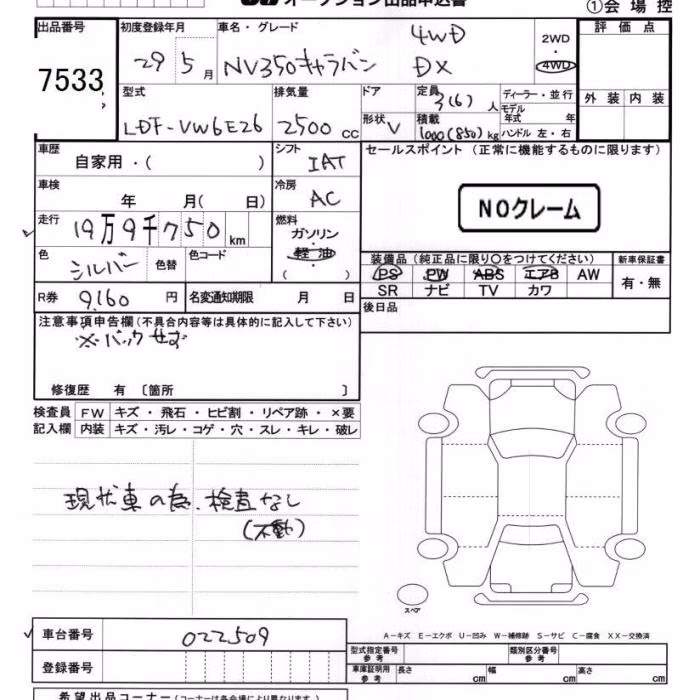 オークション出品申込書
①会場控
出品番号 初度登録年月 車名・グレード 評価点
7533 29 5月 NV350キャラバン 4WD DX 2WD・4WD
外装 内装
型式 排気量 ドア 定員 3(6)人 ディーラー・並行
モデル年式 年
LDF-VW6E26 2500cc 形状 V 積載 1000(850)kg ハンドル 左・右
車歴 自家用・( ) シフト IAT セールスポイント (正常に機能するものに限ります)
車検 年 月( 日) 冷房 AC NOクレーム
走行 19万9千750km 燃料 ガソリン・軽油( )
色 シルバー 色替 色コード 装備品(純正品に限り○をつけてください) 新車保証書
PS PW ABS エアB AW 有・無
SR ナビ TV カワ
R券 9,160円 名変通知期限 月 日 後日品
注意事項申告欄(不具合内容等は具体的に記入して下さい)
※バックせず
修復歴 有 〔箇所 〕
検査員 FW キズ・飛石・ヒビ割・リペア跡・×要
記入欄 内装 キズ・汚レ・コゲ・穴・スレ・キレ・破レ
現状車の為、検査なし
(不動)
スペア
車台番号 022509
A−キズ E−エクボ U−凹み W−補修跡 S−サビ C−腐食 XX−交換済
型式指定番号 参考 類別区分番号 参考
登録番号 車庫証明用 参考 長さ cm 幅 cm 高さ cm
希望出品コーナー(コーナーは各会場により異なります。)